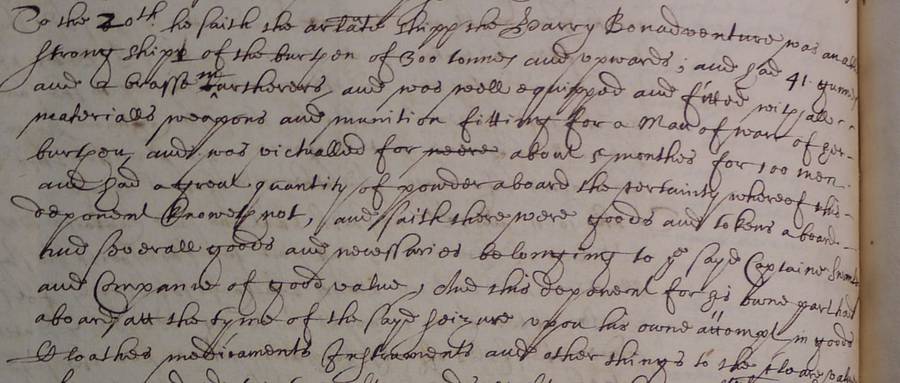 To the 20th he saith the arlate shipp the Harry Bonadventure was an able
strong shipp of the burthen of 300 tonnes and upwards; and had 41 gunnes
and a brasse murtherers and was well equipped and fitted with all
materialls weapons and munition fitting for a Man of warr of her
burthen, and was victualled for neere about 5 monthes for 100 men
and had a great quantity of powder aboard the certainty whereof this
deponent knoweth not, and saith there were goods and tokens aboard
and severall goods and necessaries belonging to ye sayd Captaine
and Companie of good value, And this deponent for his owne part had
aboard att the tyme of the sayd seizure upon his owne accompt in goods
Cloathes medicaments Instruments and other things to the cleare value